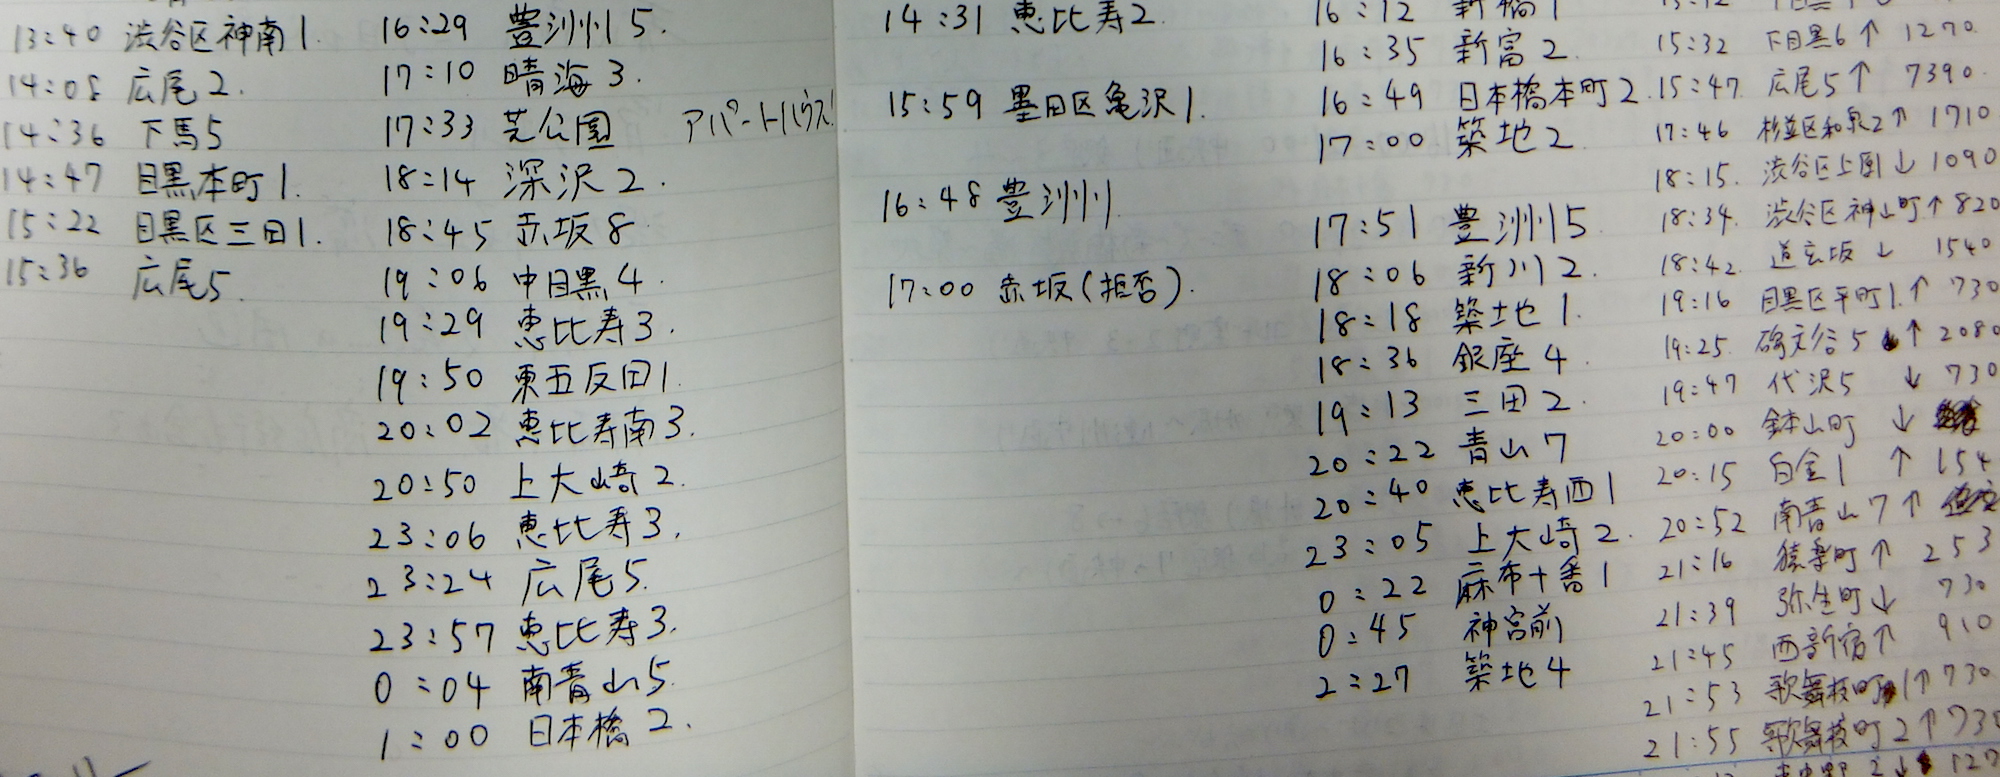 13:40 渋谷区神南1.
14:08 広尾2.
14:36 下馬5
14:47 目黒本町1.
15:22 目黒区三田1.
15:36 広尾5.
16:29 豊洲5.
17:10 晴海3.
17:33 芝公園 アパートハウス!
18:14 深沢2.
18:45 赤坂8
19:06 中目黒4.
19:29 恵比寿3.
19:50 東五反田1.
20:02 恵比寿南3.
20:50 上大崎2.
23:06 恵比寿3.
23:24 広尾5.
23:57 恵比寿3.
0:04 南青山5.
1:00 日本橋2.
14:31 恵比寿2.
15:59 墨田区亀沢1.
16:48 豊洲1.
17:00 赤坂(拒否).
16:12 新橋1
16:35 新富2.
16:49 日本橋本町2.
17:00 築地2.
17:51 豊洲5
18:06 新川2.
18:18 築地1.
18:36 銀座4.
19:13 三田2.
20:22 青山7
20:40 恵比寿西1
23:05 上大崎2.
0:22 麻布十番1
0:45 神宮前
2:27 築地4
15:32 下目黒6↑ 1270.
15:47. 広尾5↑ 7390.
17:46 杉並区和泉2↑ 1710
18:15. 渋谷区上原1↓ 1090
18:34. 渋谷区神山町↑820
18:42. 道玄坂↓ 1540
19:16 目黒区平町1.↑ 730
19:25. 碑文谷5 ↑ 2080
19:47 代沢5 ↓ 730
20:00 鉢山町 ↓
20:15 白金1 ↑ 154
20:52 南青山7↑
21:16 猿楽町↑ 253
21:39 弥生町↓ 730
21:45 西新宿↑ 910
21:53 歌舞伎町1↑730
21:55 歌舞伎町2↑730